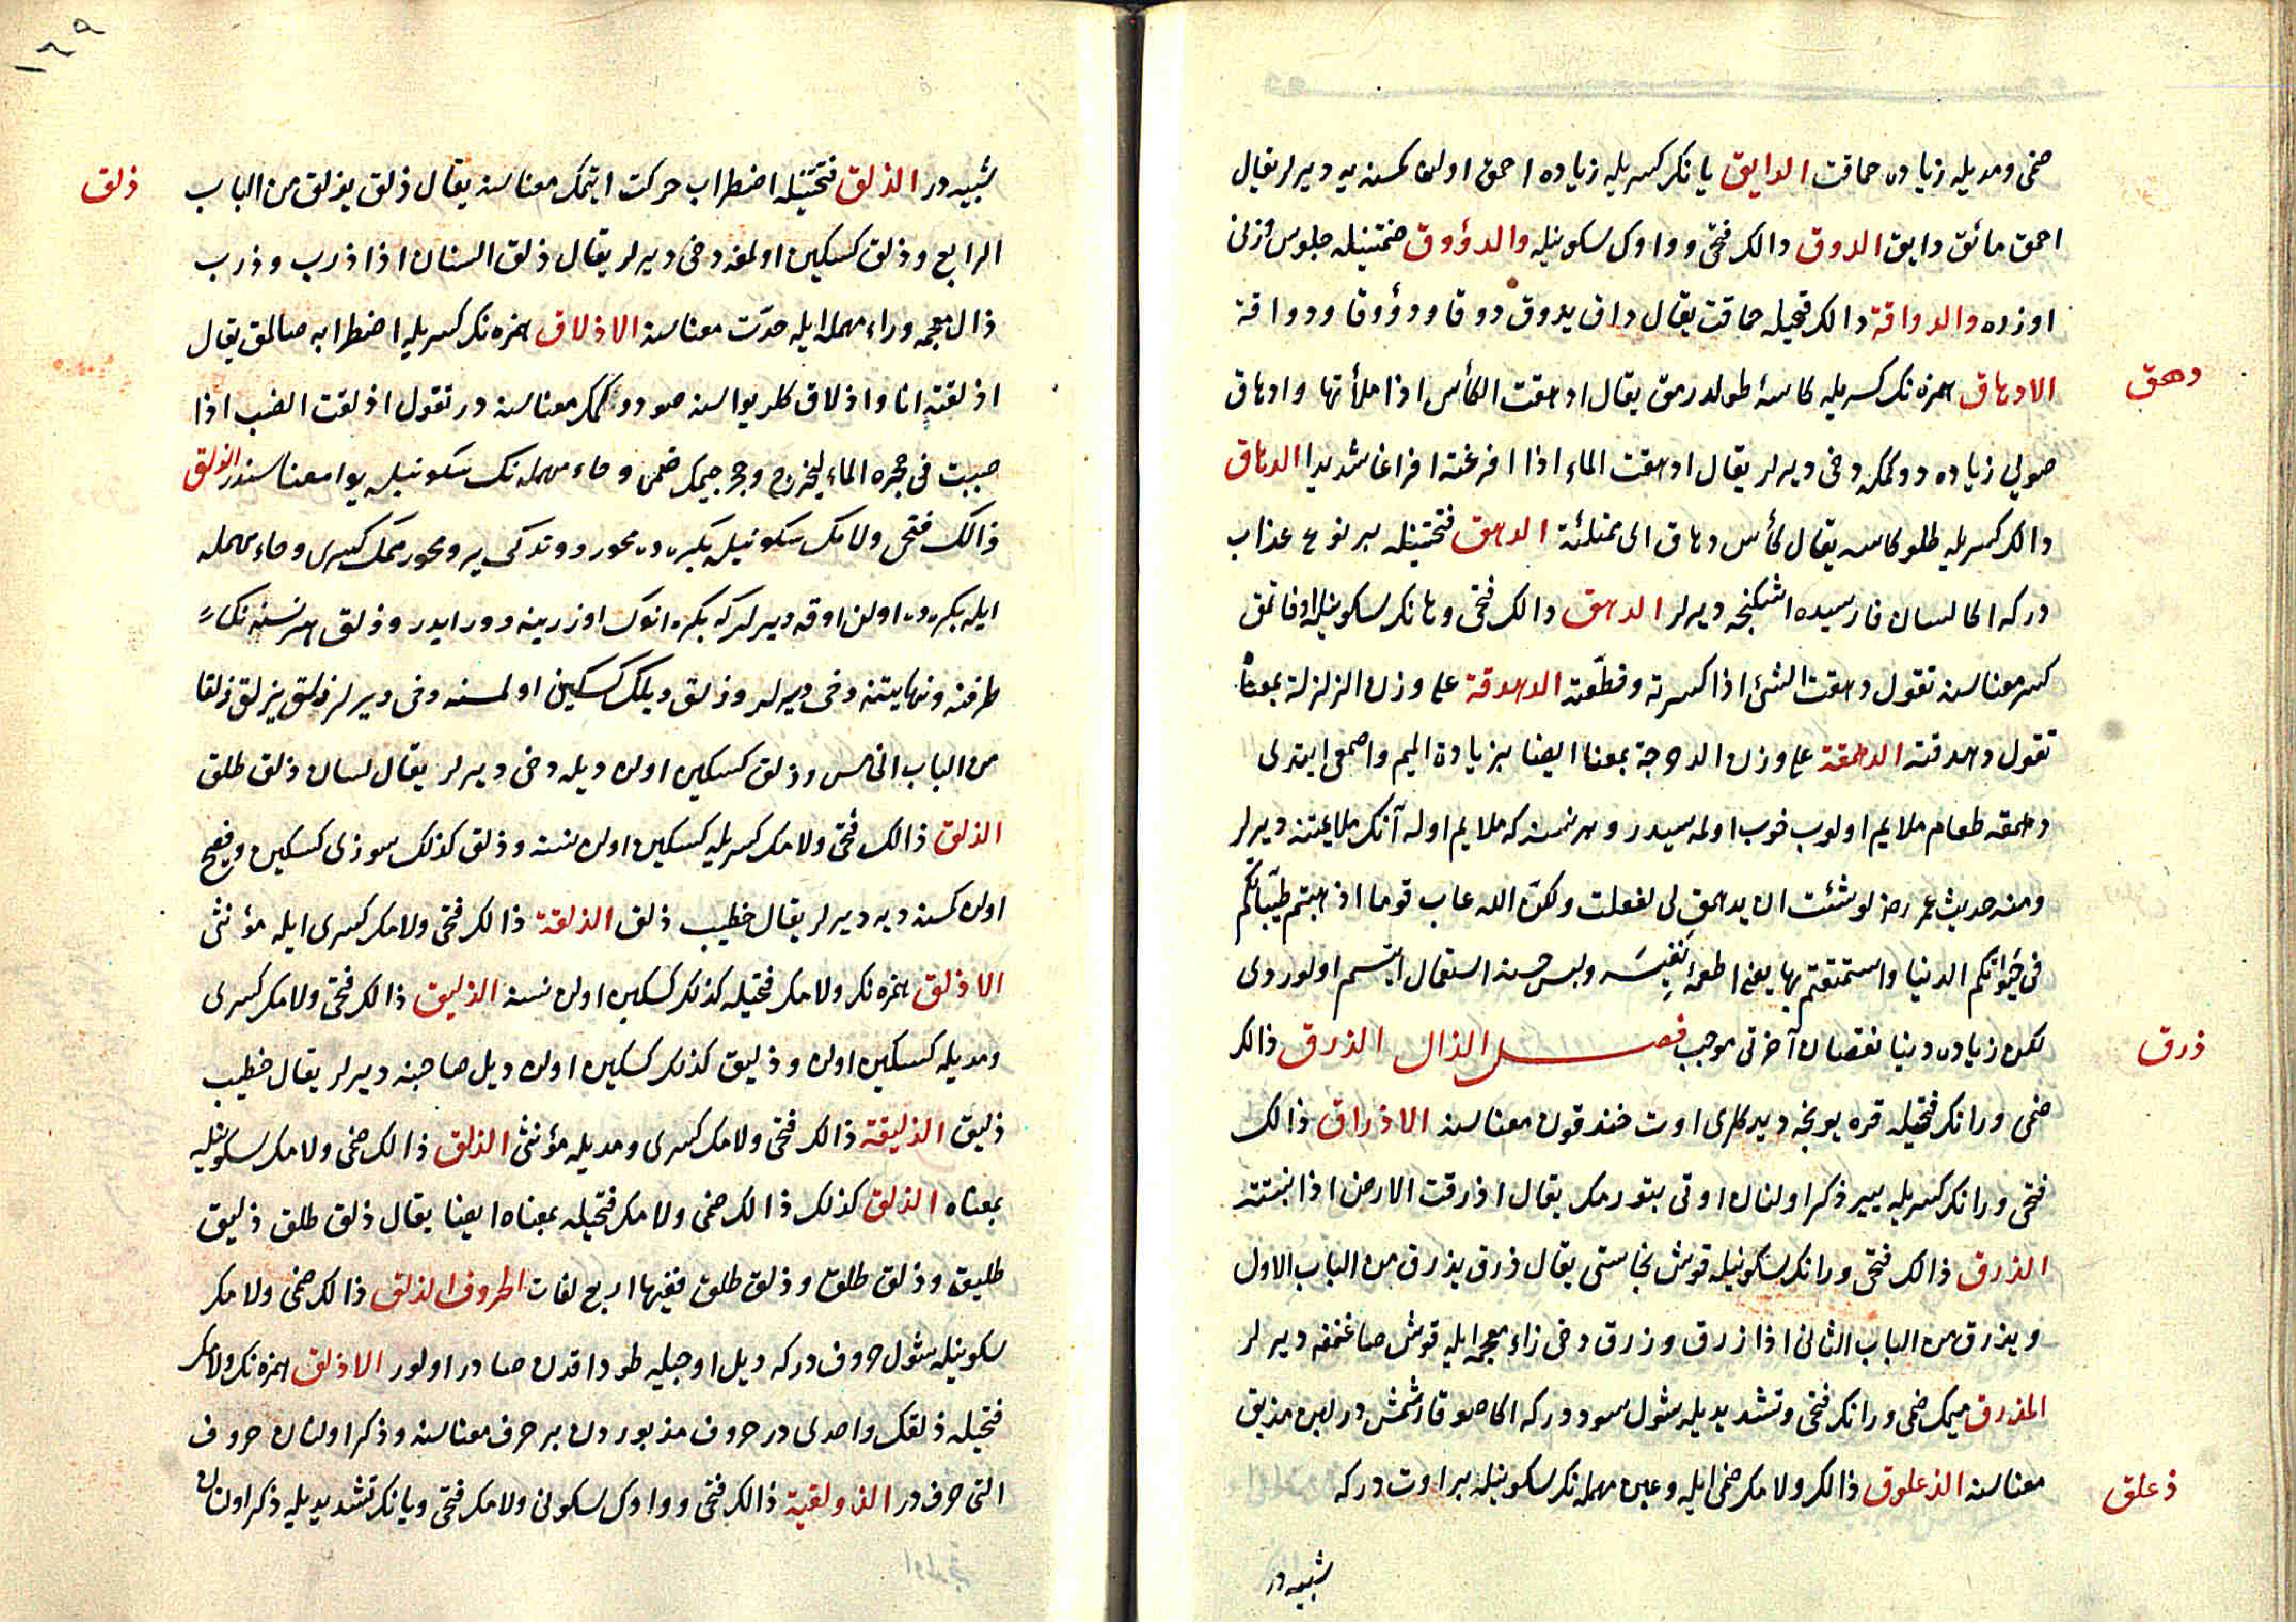 ضمى ومديله زياده حماقت الدايق يانك كسريله زياده احمق اولان كمسنه يه ديرلر يقال
احمق مائق دايق الدوق دالك فتحى وواوك سكونيله والدؤوق ضمتينله جلوس وزنى
اوزره والدواقة دالك فتحيله حماقت يقال داق يدوق دوقا ودؤوقا ودواقة
دهق
الادهاق همزه نك كسريله كاسه طولدرمق يقال ادهقت الكأس اذا ملأتها وادهاق
صويى زياده دوكمكه دخى ديرلر يقال ادهقت الماء اذا افرغته افراغا شديدا الدهاق
دالك كسريله طلو كاسه يقال كأس دهاق اى ممتلئة الدهق فتحتينله بر نوع عذاب
دركه اكا لسان فارسيده اشكنجه ديرلر الدهق دالك فتحى وهانك سكونيله اوفاتمق
كسر معناسنه تقول دهقت الشئ اذا كسرته وقطعته الدهدقة على وزن الزلزلة بمعناه
تقول دهدقته الدهمقة على وزن الدحرجة بمعنا ايضا بزيادة الميم واصمعى ايتدى
دهمقه طعام ملايم اولوب خوب اولمه سيدر وهر نسنه كه ملايم اوله آنك ملايمتنه ديرلر
ومنه حديث عمر رضى لو شئت ان يدهمق لى لفعلت ولكن الله عاب قوما اذهبتم طيباتكم
فى حيوتكم الدنيا واستمتعتم بها يعنى اطعمهٔ نفيسه ولبس حسنه استعمال ايتسم اولوردى
ذرق
لكن زياده دنيا نقصان آخرتى موجب فصل الذال الذرق ذالك
ضمى ورانك فتحيله قره يونجه ديدكلرى اوت خندقوق معناسنه الاذراق ذالك
فتحى ورانك كسريله يير ذكر اولنان اوتى بتورمك يقال اذرقت الارض اذا انبتته
الذرق ذالك فتحى ورانك سكونيله قوش نجاستى يقال ذرق يذرق من الباب الاول
ويذرق من الباب الثانى اذا زرق وزرق دخى زاء معجمه ايله قوش صاغنمغه ديرلر
المذرق ميمك ضمى ورانك فتحى وتشديديله شول سوددركه اكا صو قارشمش در لبن مذيق
ذعلق
معناسنه الذعلوق ذالك ولامك ضمى ايله وعين مهمله نك سكونيله بر اوت دركه
شبيه در
١٦٩
ذلق
شبيه در الذلق فتحتينله اضطراب حركت ايتمك معناسنه يقال ذلق يذلق من الباب
الرابع وذلق كسكين اولمغه دخى ديرلر يقال ذلق السنان اذا ذرب وذرب
ذال معجمه وراء مهمله ايله حدّت معناسنه الاذلاق همزه نك كسريله اضطرابه صالمق يقال
اذلقته انا واذلاق كلر يواسنه صو دوكمك معناسنه در تقول اذلقت الضب اذا
صببت فى جحره الماء ليخرج وجحر جيمك ضمى وحاء مهمله نك سكونيله يوا معناسنه در الذلق
ذالك فتحى ولامك سكونيله بكره ده محور دوندكى ير ومحور ميمك كسرى وحاء مهمله
ايله بكره ده اولن اوقه ديرلركه بكره انوك اوزرينه دور ايدر وذلق هر نسنه نك
طرفنه ونهايتنه دخى ديرلر وذلق ديلك كسكين اولمسنه دخى ديرلر ذلق يذلق ذلقا
من الباب الخامس وذلق كسكين اولن ديله دخى ديرلر يقال لسان ذلق طلق
الذلق ذالك فتحى ولامك كسريله كسكين اولن نسنه وذلق كذلك سوزى كسكين وفصيح
اولن كمسنه ديه ديرلر يقال خطيب ذلق الذلقة ذالك فتحى ولامك كسرى ايله مؤنثى
الاذلق همزه نك ولامك فتحيله كذلك كسكين اولن نسنه الذليق ذالك فتحى ولامك كسرى
ومديله كسكين اولن وذليق كذلك كسكين اولن ديل صاحبنه ديرلر يقال خطيب
ذليق الذليقة ذالك فتحى ولامك كسرى ومديله مؤنثى الذلق ذالك ضمى ولامك سكونيله
بمعناه الذلق كذلك ذالك ضمى ولامك فتحيله بمعناه ايضا يقال ذلق طلق ذليق
طليق وذلق طلق وذلق طلق ففيها اربع لغات الحروف الذلق ذالك ضمى ولامك
سكونيله شول حروف دركه ديل اوجيله طوداقدن صادر اولور الاذلق همزه نك ولامك
فتحيله ذلقك واحدى در حروف مذبوردن بر حرف معناسنه وذكر اولنان حروف
التى حرف در الذولقية ذالك فتحى وواوك سكونى ولامك فتحى ويانك تشديديله ذكر اولنان